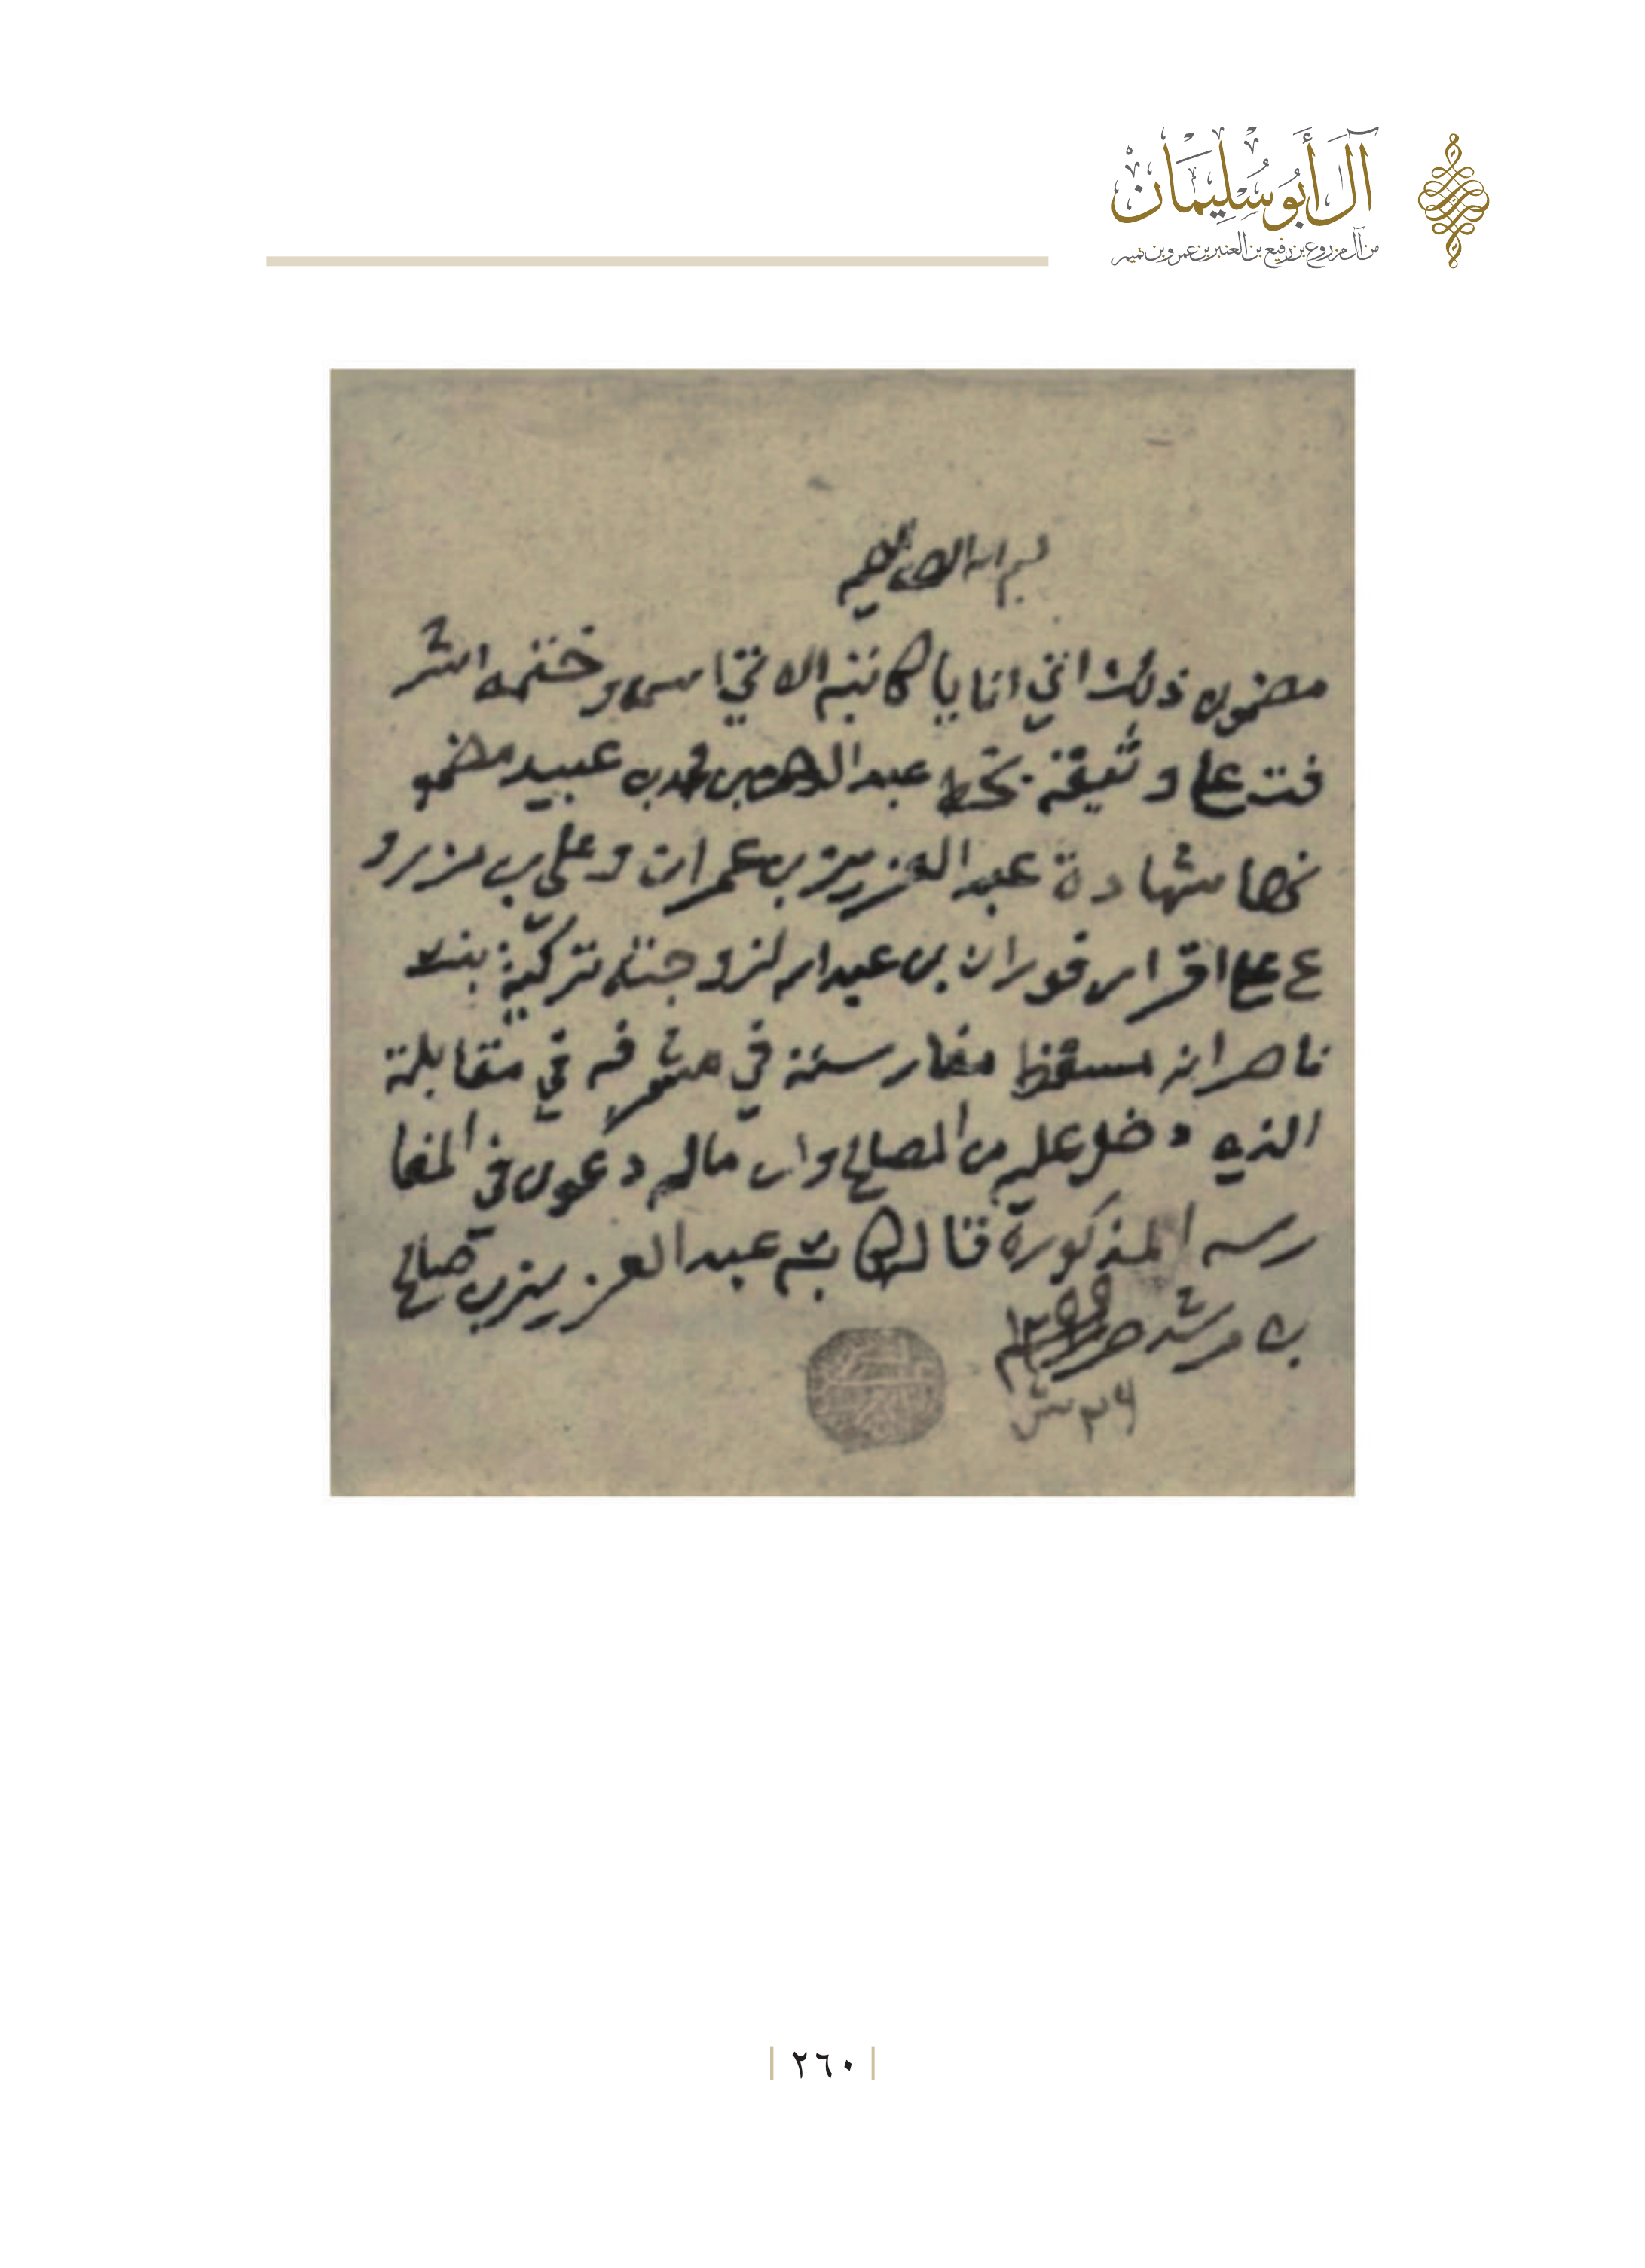 آل أبو سليمان
من آل مزروع بن رفيع بن العنبر بن عمرو بن تميم
بسم الله الرحمن الرحيم
مضمون ذلك انني انا يا كاتبه الاتي اسمي وختمه اشر
فت على وثيقة بخط عبد الرحمن بن محمد بن عبيد مضمو
نها شهادة عبد العزيز بن عمران وعلي بن مزرو
ع على اقرار فوزان بن عبد الله لزوجته تركيّة بنت
ناصر انه مسقط مغارسته في في مقابلة
الذي دخل عليه من المصالح وان ماله دعوى في المغا
رسه المذكورة قال كاتبه عبد العزيز بن صالح
بن مرشد حرر
٢٦٠